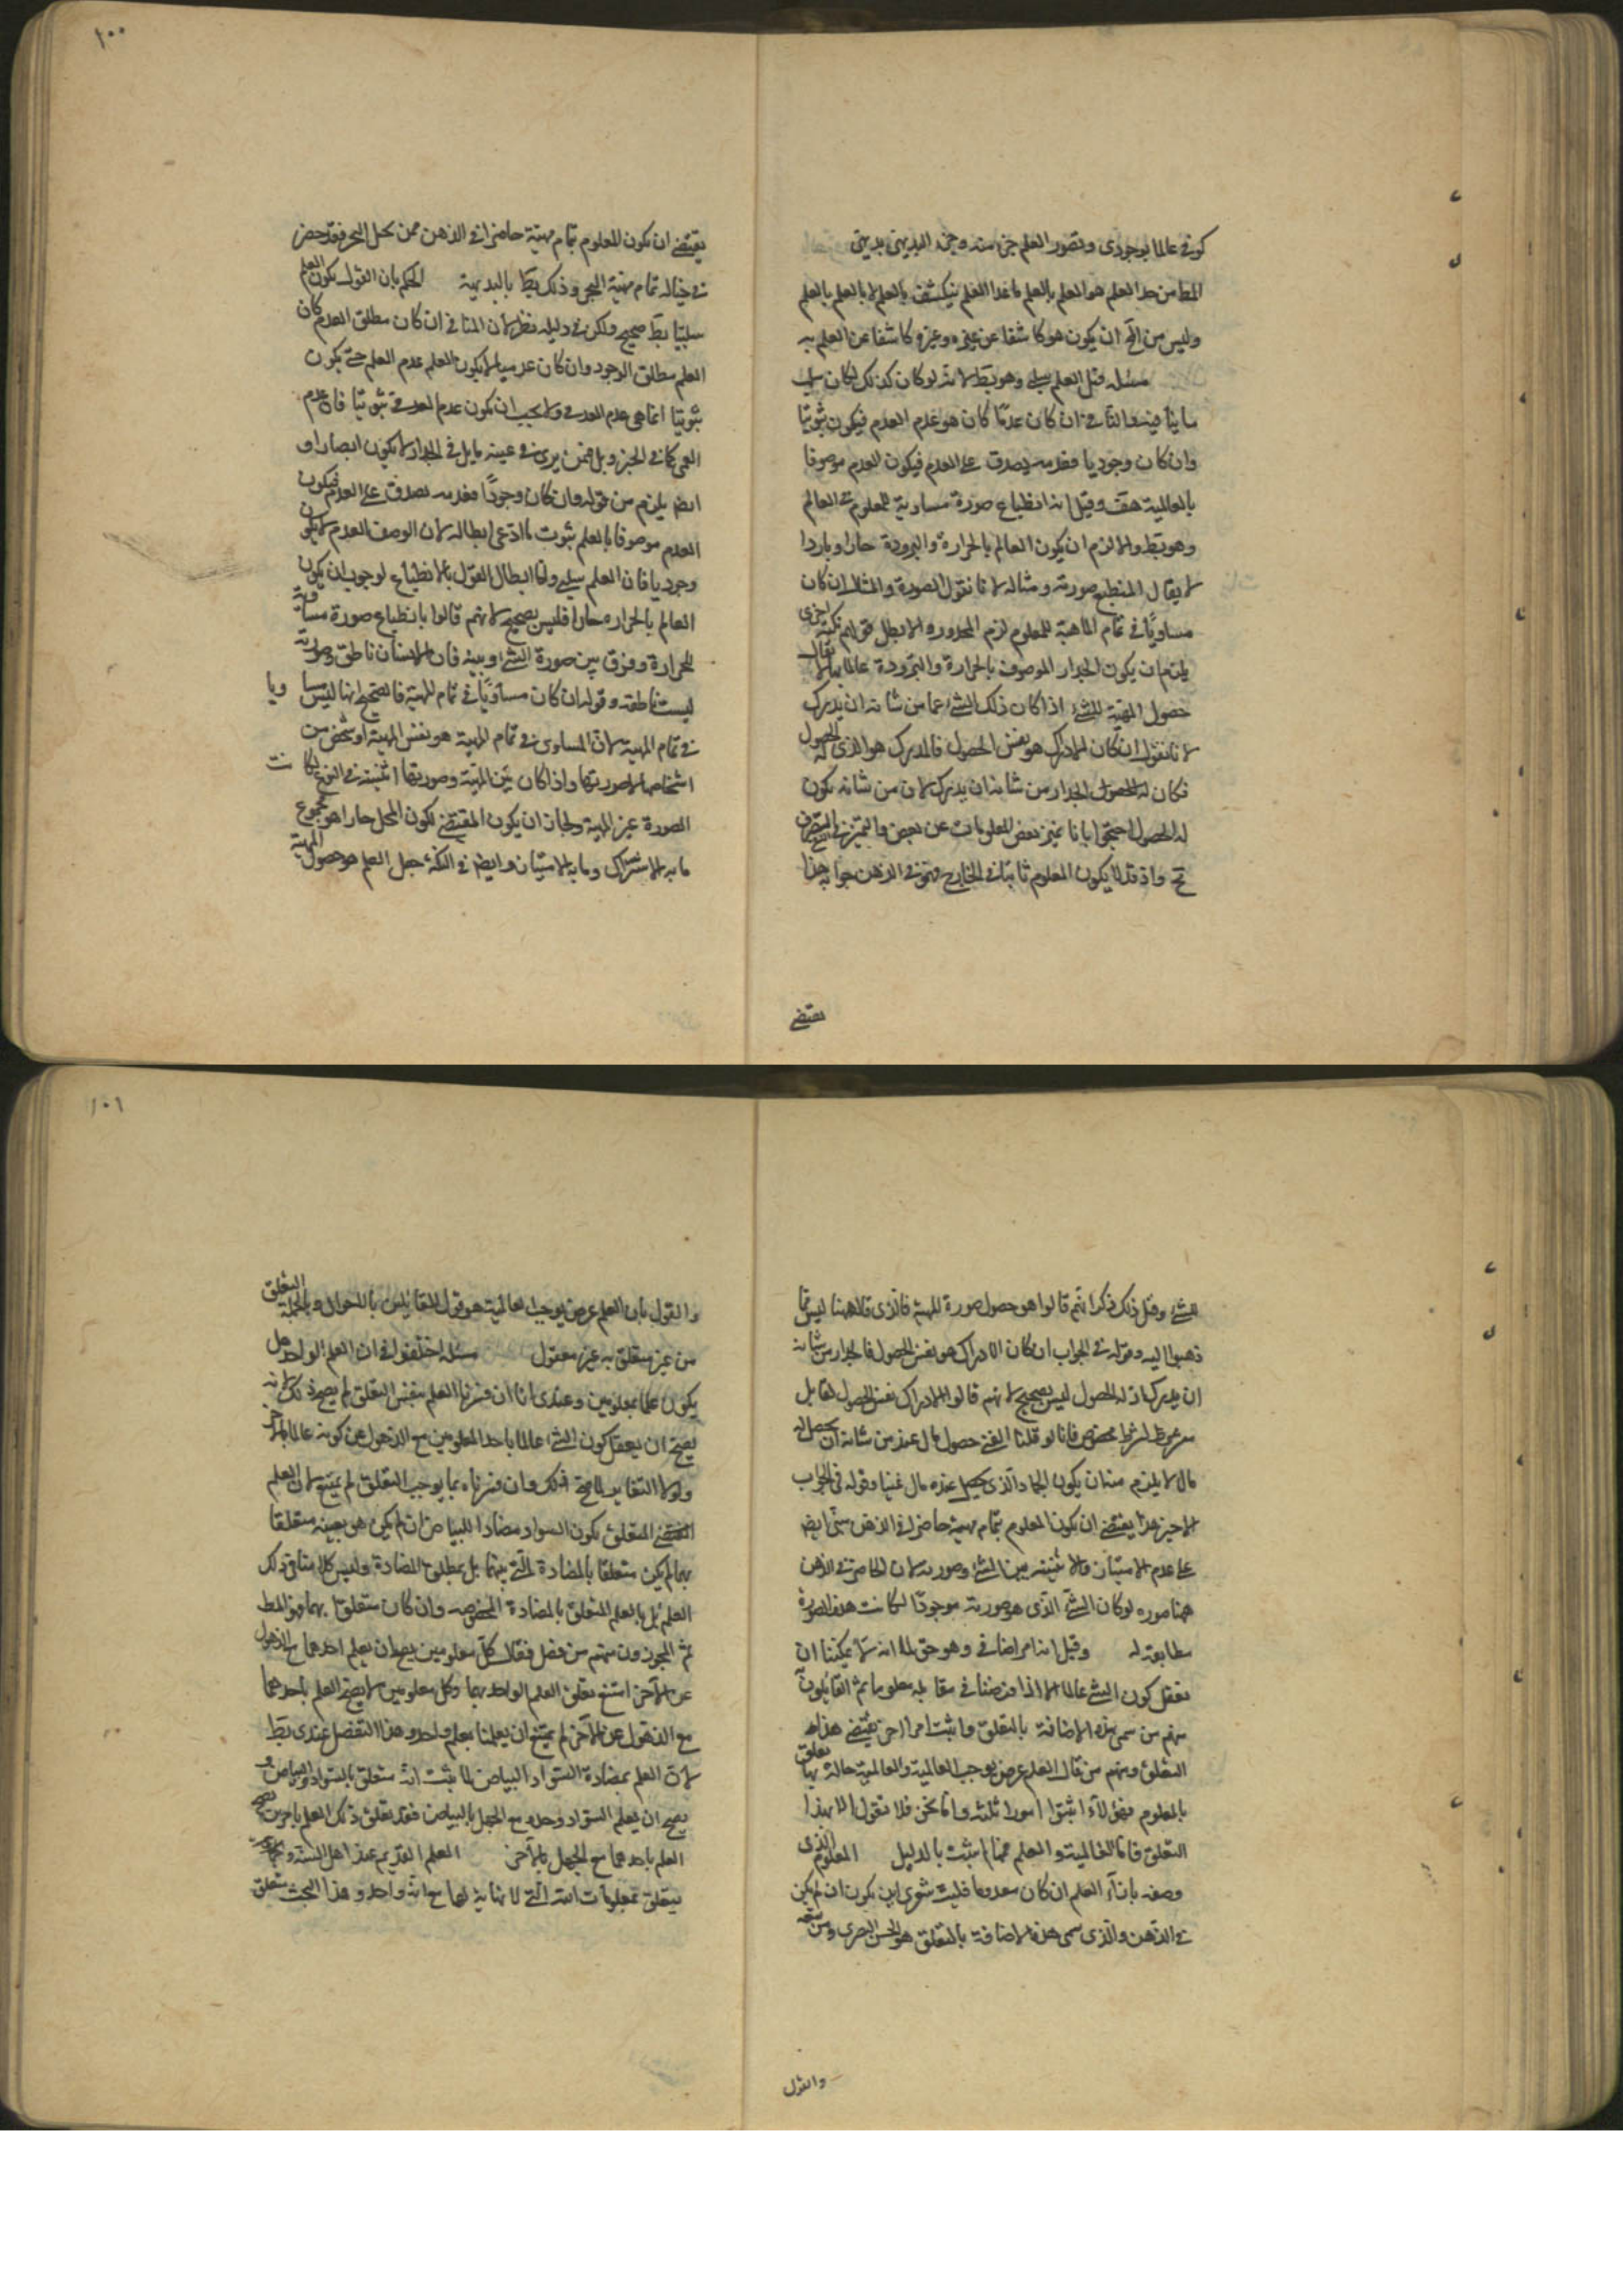 كونى عالما بوجودى وتصور العلم جزء منه وجزء البديهى بديهى
المط من حد العلم هو العلم بالعلم ما عدا العلم ينكشف بالعلم لا بالعلم بالعلم
وليس من المح ان يكون هو كاشفا عن غيره وغيره كاشفا عن العلم به
مسئله قيل العلم سلبى وهو بط لانه لو كان كذلك لكان سلب
ما ينافيه والمنافى ان كان عدمًا كان هو عدم العدم فيكون ثبوتيا
وان كان وجوديا فعدمه يصدق على العدم فيكون العدم موصوفا
بالعالمية هف وقيل انه انطباع صورة مساوية للمعلوم فى العالم
وهو بط والا لزم ان يكون العالم بالحرارة والبرودة حارا وباردا
لا يقال المنطبع صورته ومثاله لانا نقول الصورة والمثال ان كان
مساويًا فى تمام الماهية للمعلوم لزم المحذور والا بطل قولهم نكتة اخرى
يلزم ان يكون الجدار الموصوف بالحرارة والبرودة عالما بهما لا يقال
حصول المهية للشئ اذا كان ذلك الشئ مما من شانه ان يدرك
لانا نقول ان كان الادراك هو نفس الحصول فالمدرك هو الذى له الحصول
فكان له الحصول الجدار من شانه ان يدرك لان من شانه يكون
له الحصول احتجوا بانا نميز بعض المعلومات عن بعض والتميز فى العدم الصرف
مح واذ قد لا يكون المعلوم ثابتا فى الخارج فهو فى الذهن جوابه هذا
يقتضى
١٠٠
يقتضى ان يكون المعلوم بتمام مهيته حاضرا فى الذهن فمن تخيل البحر فقد حضر
فى خياله تمام مهية البحر وذلك بط بالبديهية الحكم بان القول بكون العلم
سلبيا بط صحيح ولكن فى دليله نظر لان المنافى ان كان مطلق العدم كان
العلم مطلق الوجود وان كان عدميا لا يكون العلم عدم العلم حتى يكون
ثبوتيا انما هى عدم العدمى ولا يجب ان يكون عدم العدمى ثبوتيا فان عدم
العمى كما فى الحجر وبل فمن يرى فى عينه بابل فى الجدار لا يكون ابصارا و
ايضا يلزم من قوله وان كان وجودًا فعدمه يصدق على العدم فيكون
العدم موصوفا بالعلم ثبوت ما ادعى ابطاله لان الوصف العدم لا يكون
وجوديا فان العلم سلبى واما ابطال القول بالانطباع لوجوب ان يكون
العالم بالحرارة حارا فليس بصحيح لانهم قالوا بانطباع صورة مساوية
للحرارة وفرق بين صورة الشئ وبينه فان الانسان ناطق وصورته
ليست ناطقة وقوله ان كان مساويًا فى تمام المهية فالصحيح انها ليس مساويا
فى تمام المهية لان المساوى فى تمام المهية هو نفس المهية او شخص من
اشخاصها لا صورتها واذا كان بين المهية وصورتها اثنينية فى النوع لكانت
الصورة غير المهية ولجاز ان يكون المقتضى لكون المحل حارا هو مجموع
ما به الاشتراك وما به الامتياز وايضا فى النكتة جعل العلم هو حصول المهية
للشئ وقبل ذلك ذكر انهم قالوا هو حصول صورة المهية فالذى قاله هنا ليس مما
ذهبوا اليه وقوله فى الجواب ان كان الادراك هو نفس الحصول فالجدار من شانه
ان يدرك اذ له الحصول ليس بصحيح لانهم قالوا الادراك نفس الحصول لقابل
مشروط بشرط مخصوص فانا لو قلنا الغنى حصول مال عند من شانه ان يحصل له
مال لا يلزم منه ان يكون الجماد الذى حصل عنده مال غنيا وقوله فى الجواب
الاخير هذا يقتضى ان يكون المعلوم بتمام مهيته حاضرا فى الذهن مبنى ايضا
على عدم الامتياز والاثنينية بين الشئ وصورته لان الحاضر فى الذهن
ههنا صورة لو كان الشئ الذى هو صورته موجودًا لكانت هذه الصورة
مطابقة له وقيل انه امر اضافى وهو حق لما انه لا يمكننا ان
نعقل كون الشئ عالما الا اذا فرضنا فى مقابله معلوما ثم القائلون
منهم من سمى هذه الاضافة بالتعلق واثبت امرا اخر يقتضى هذا
التعلق ومنهم من قال العلم عرض يوجب العالمية والعالمية حالة لها تعلق
بالمعلوم فهؤلاء اثبتوا امورا ثلثة واما نحن فلا نقول الا بهذا
التعلق فاما العالمية والعلم فمما لم يثبت بالدليل المعلوم الذى
وصفه بازاء العلم ان كان معدوما فليت شعرى اين يكون ان لم يكن
فى الذهن والذى سمى هذه الاضافة بالتعلق هو ابو الحسين البصرى ومن تبعه
والقول
١٠١
والقول بان العلم عرض يوجب العالمية هو قول القائلين بالاحوال وبالجملة التعلق
من غير متعلق به غير معقول مسئله اختلفوا فى ان العلم الواحد هل
يكون علما بمعلومين وعندى انا ان فسرنا العلم بنفس التعلق لم يصح ذلك لانه
يصح ان يعقل كون الشئ عالما باحد المعلومين مع الذهول عن كونه عالما بالاخر
ولولا التغاير لما صح ذلك وان فسرناه بما يوجب التعلق لم يمتنع لان العلم
المتعلق بكون السواد مضادا للبياض ان لم يكن هو بعينه متعلقا
بهما لم يكن متعلقا بالمضادة التى بينهما بل بمطلق المضادة وليس كلامنا فى ذلك
العلم بل بالعلم المتعلق بالمضادة المخصوصه وان كان متعلقا بهما فهو المط
ثم المجوزون منهم من فصل فقال كل معلومين يصح ان يعلم احدهما مع الذهول
عن الآخر امتنع تعلق العلم الواحد بهما وكل معلومين لا يصح العلم باحدهما
مع الذهول عن الآخر لم يمتنع ان يعلما بعلم واحد وهذا التفصيل عندى بط
لان العلم بمضادة السواد البياض لما ثبت انه متعلق بالسواد والبياض و
يصح ان يعلم السواد وحده مع الجهل بالبياض فقد تعلق ذلك العلم بامرين يصح
العلم باحدهما مع الجهل بالآخر العلم القديم عند اهل السنة
يتعلق بمعلومات الله التى لا نهاية لها مع انه واحد وهذا البحث متعلق